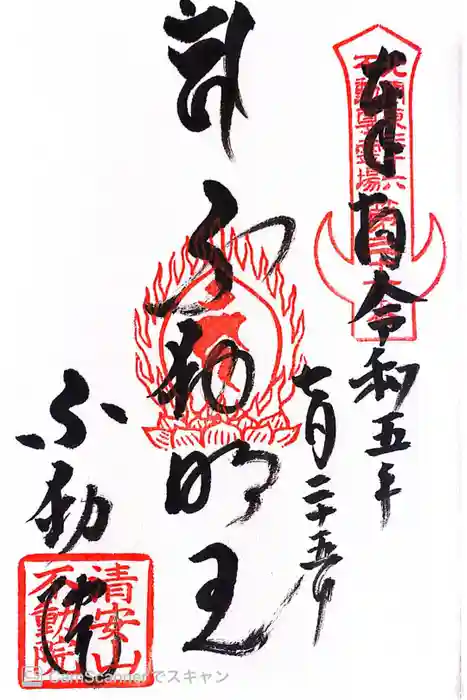 奉拝
令和五年
七月二十五日
北関東三十六
不動尊霊場
不動明王
不動院
清安山
不動院
CamScannerでスキャン